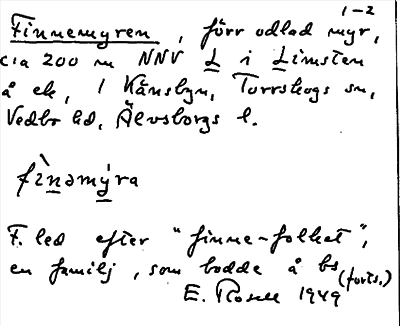 1-2
Finnemyren, förr odlad myr,
cia 200 m NNV L i Limsten
å ek, 1 Kånsbyn, Torrskogs sn,
Vedbo hd, Älvsborgs l.
fìnəmýra
F. led efter "finne-folket",
en familj, som bodde å bs
(forts.)
E. Rosell 1949